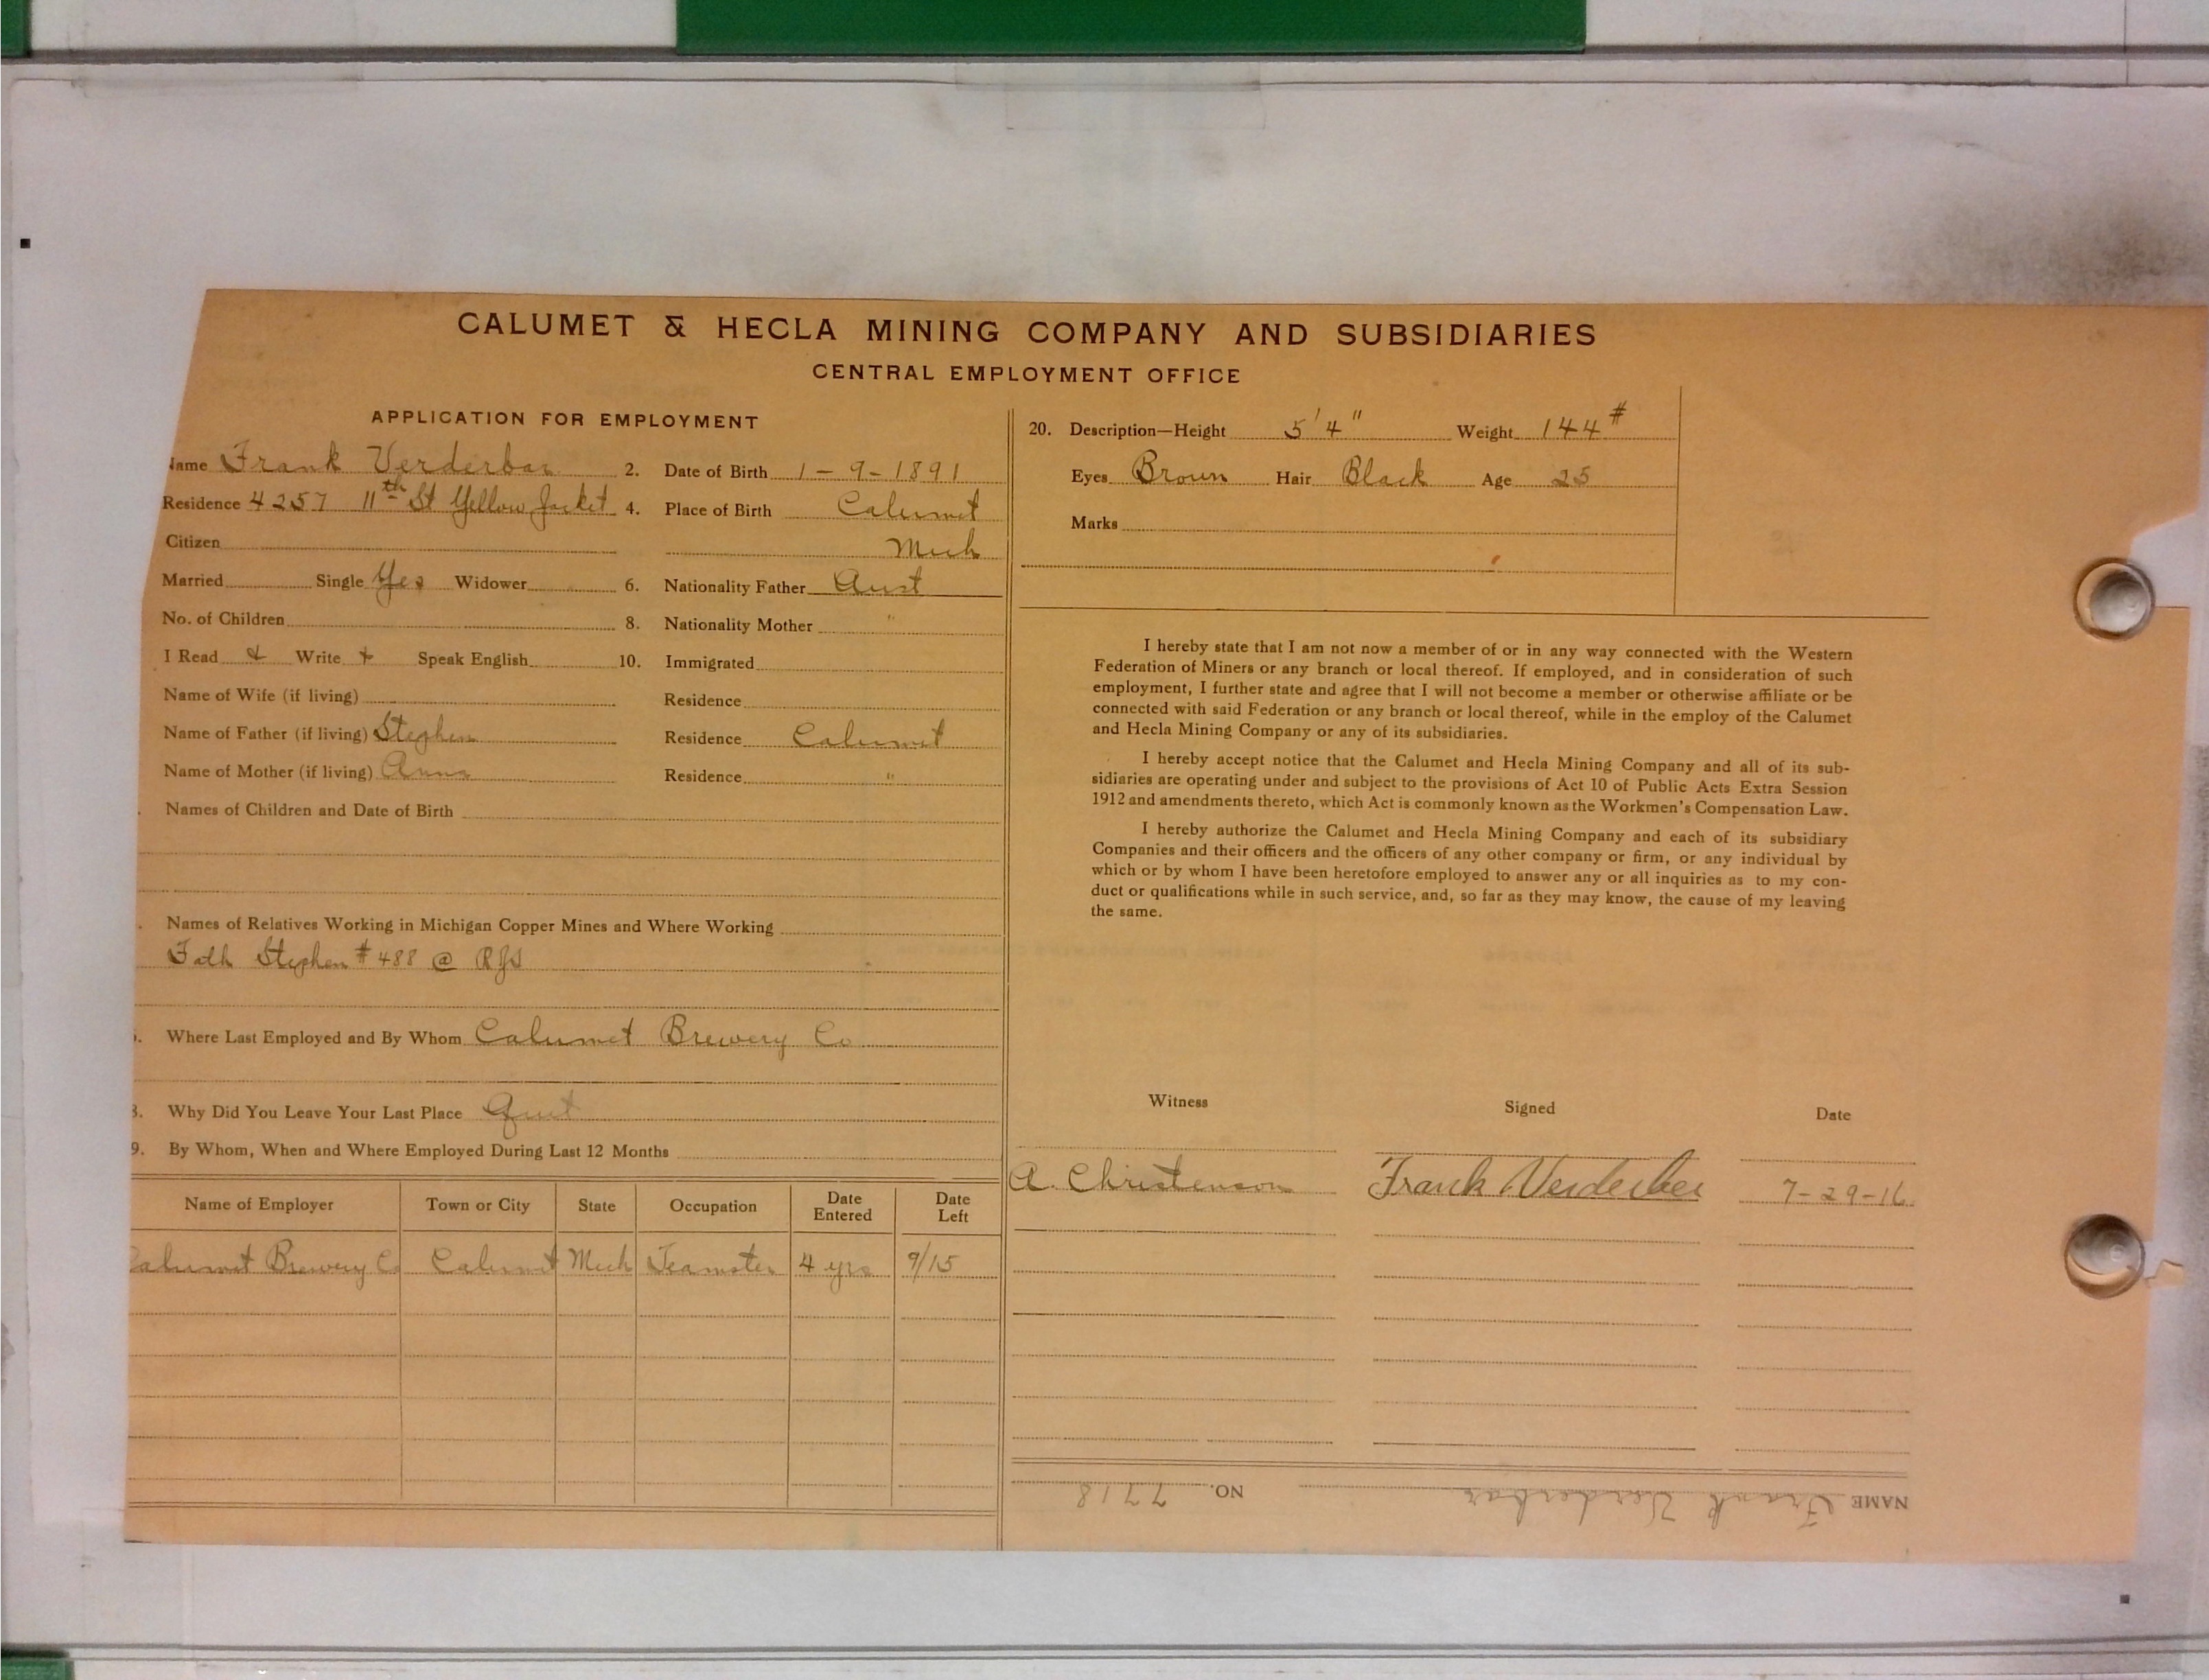 CALUMET & HECLA MINING COMPANY AND SUBSIDIARIES
CENTRAL EMPLOYMENT OFFICE
APPLICATION FOR EMPLOYMENT
Name Frank Verderbar 2. Date of Birth 1-9-1891
Residence 4257 11th St Yellow Jacket 4. Place of Birth Calumet
Citizen Mich
Married Single Yes Widower 6. Nationality Father Aust
No. of Children 8. Nationality Mother "
I Read & Write + Speak English 10. Immigrated
Name of Wife (if living) Residence
Name of Father (if living) Stephen Residence Calumet
Name of Mother (if living) Anna Residence "
Names of Children and Date of Birth
Names of Relatives Working in Michigan Copper Mines and Where Working
Fath Stephen #488 @
Where Last Employed and By Whom Calumet Brewery Co
Why Did You Leave Your Last Place Quit
9. By Whom, When and Where Employed During Last 12 Months
Name of Employer Town or City State Occupation Date Entered Date Left
Calumet Brewery Co Calumet Mich Teamster 4 yrs 9/15
20. Description—Height 5'4" Weight 144#
Eyes Brown Hair Black Age 25
Marks
I hereby state that I am not now a member of or in any way connected with the Western
Federation of Miners or any branch or local thereof. If employed, and in consideration of such
employment, I further state and agree that I will not become a member or otherwise affiliate or be
connected with said Federation or any branch or local thereof, while in the employ of the Calumet
and Hecla Mining Company or any of its subsidiaries.
I hereby accept notice that the Calumet and Hecla Mining Company and all of its sub-
sidiaries are operating under and subject to the provisions of Act 10 of Public Acts Extra Session
1912 and amendments thereto, which Act is commonly known as the Workmen's Compensation Law.
I hereby authorize the Calumet and Hecla Mining Company and each of its subsidiary
Companies and their officers and the officers of any other company or firm, or any individual by
which or by whom I have been heretofore employed to answer any or all inquiries as to my con-
duct or qualifications while in such service, and, so far as they may know, the cause of my leaving
the same.
Witness Signed Date
A. Christenson Frank Verderber 7-29-16
NAME Frank Verderbar NO. 7718